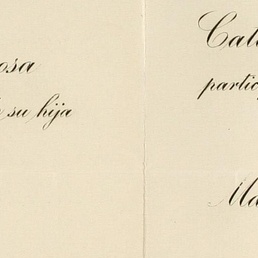 osa
su hija
Cat
partic
Ma